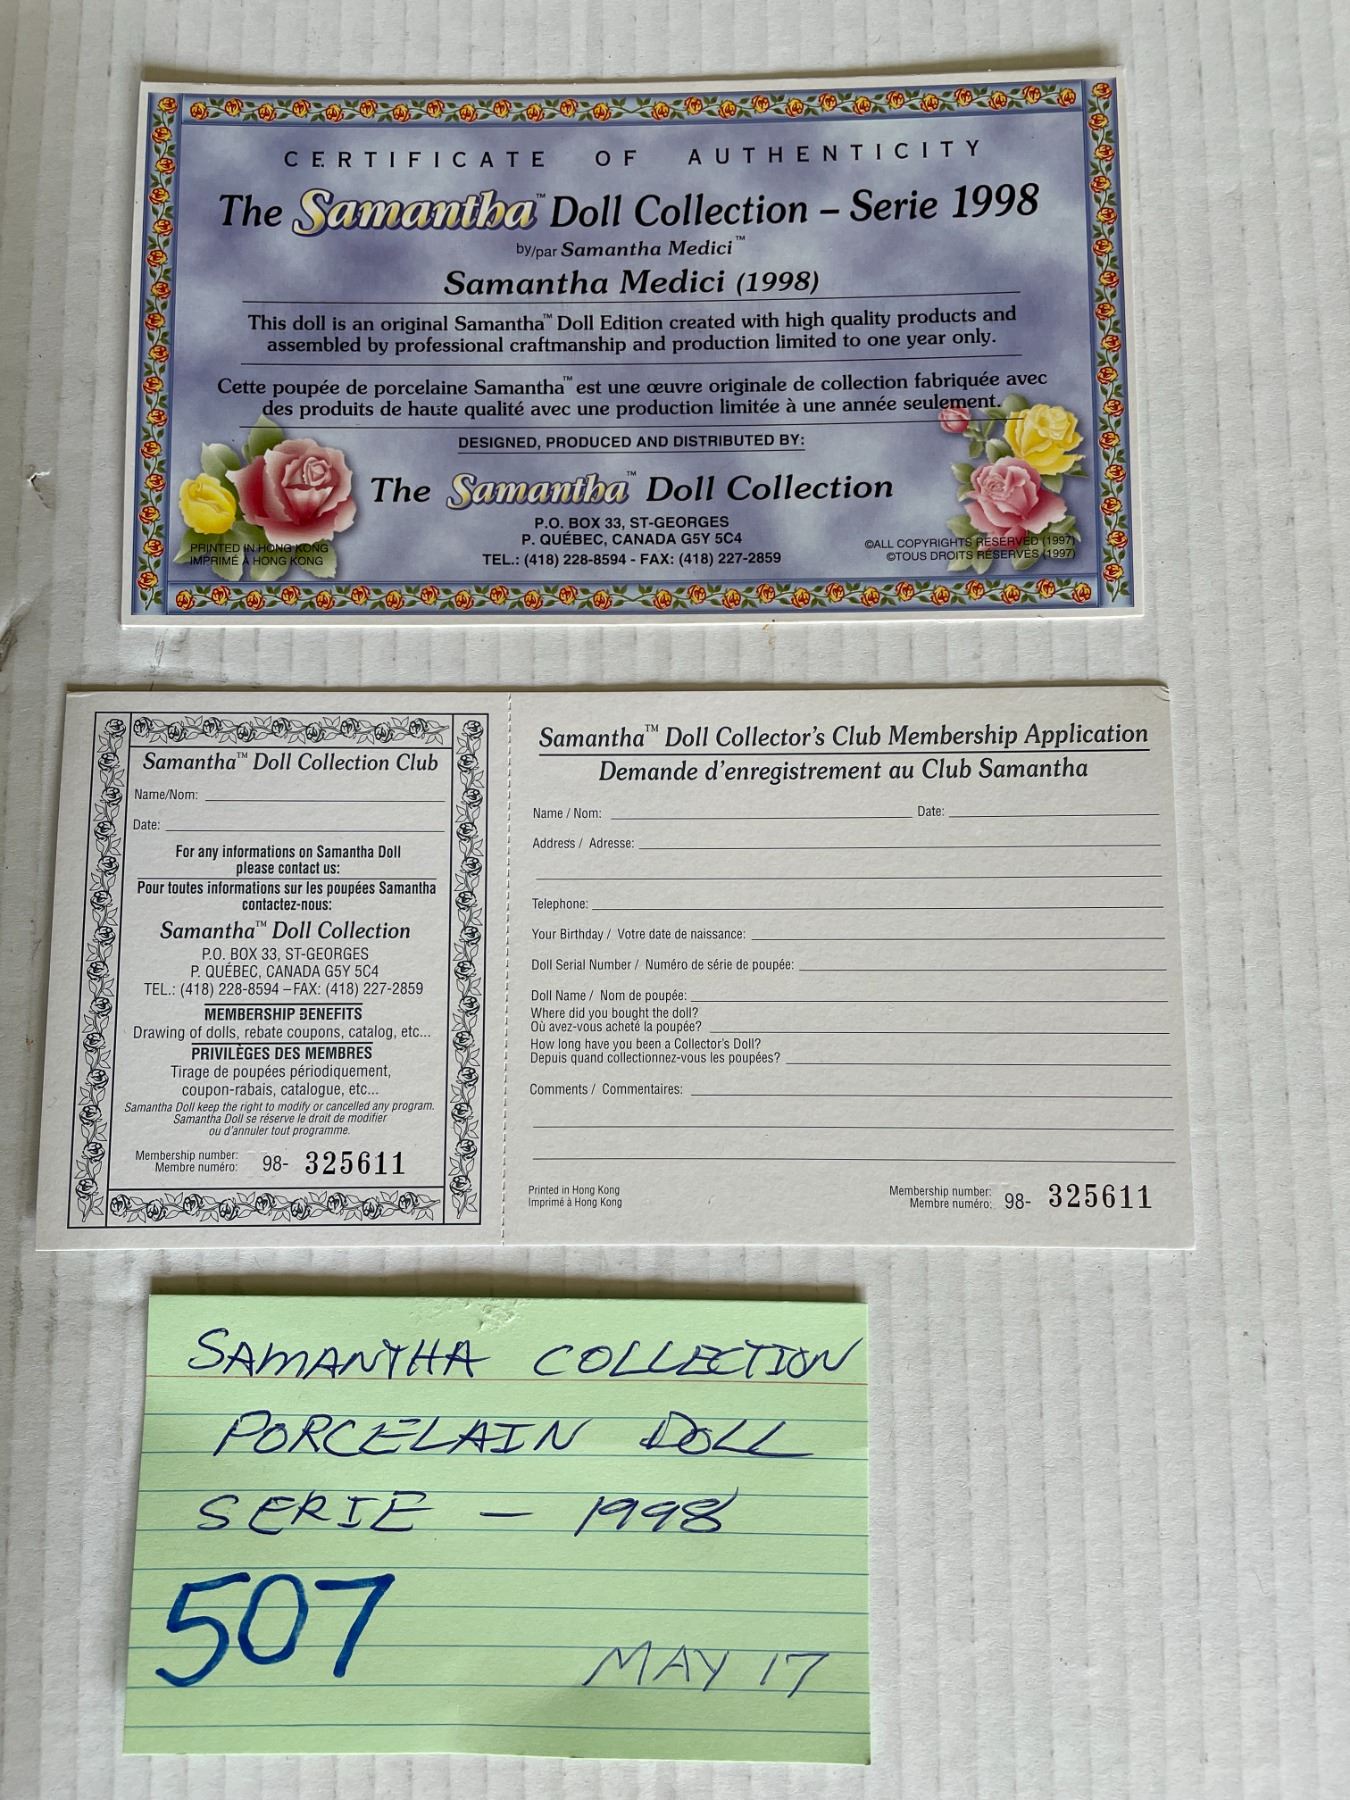 CERTIFICATE OF AUTHENTICITY
The Samantha™ Doll Collection – Serie 1998
by/par Samantha Medici™
Samantha Medici (1998)
This doll is an original Samantha™ Doll Edition created with high quality products and
assembled by professional craftmanship and production limited to one year only.
Cette poupée de porcelaine Samantha™ est une œuvre originale de collection fabriquée avec
des produits de haute qualité avec une production limitée à une année seulement.
DESIGNED, PRODUCED AND DISTRIBUTED BY:
The Samantha™ Doll Collection
P.O. BOX 33, ST-GEORGES
P. QUÉBEC, CANADA G5Y 5C4
TEL.: (418) 228-8594 - FAX: (418) 227-2859
PRINTED IN HONG KONG
IMPRIMÉ À HONG KONG
©ALL COPYRIGHTS RESERVED (1997)
©TOUS DROITS RÉSERVÉS (1997)
Samantha™ Doll Collection Club
Name/Nom:
Date:
For any informations on Samantha Doll
please contact us:
Pour toutes informations sur les poupées Samantha
contactez-nous:
Samantha™ Doll Collection
P.O. BOX 33, ST-GEORGES
P. QUÉBEC, CANADA G5Y 5C4
TEL.: (418) 228-8594 – FAX: (418) 227-2859
MEMBERSHIP BENEFITS
Drawing of dolls, rebate coupons, catalog, etc...
PRIVILÈGES DES MEMBRES
Tirage de poupées périodiquement,
coupon-rabais, catalogue, etc...
Samantha Doll keep the right to modify or cancelled any program.
Samantha Doll se réserve le droit de modifier
ou d'annuler tout programme.
Membership number:
Membre numéro: 98- 325611
Samantha™ Doll Collector's Club Membership Application
Demande d'enregistrement au Club Samantha
Name / Nom: Date:
Address / Adresse:
Telephone:
Your Birthday / Votre date de naissance:
Doll Serial Number / Numéro de série de poupée:
Doll Name / Nom de poupée:
Where did you bought the doll?
Où avez-vous acheté la poupée?
How long have you been a Collector's Doll?
Depuis quand collectionnez-vous les poupées?
Comments / Commentaires:
Printed in Hong Kong
Imprimé à Hong Kong
Membership number:
Membre numéro: 98- 325611
SAMANTHA COLLECTION
PORCELAIN DOLL
SERIE — 1998
507
MAY 17